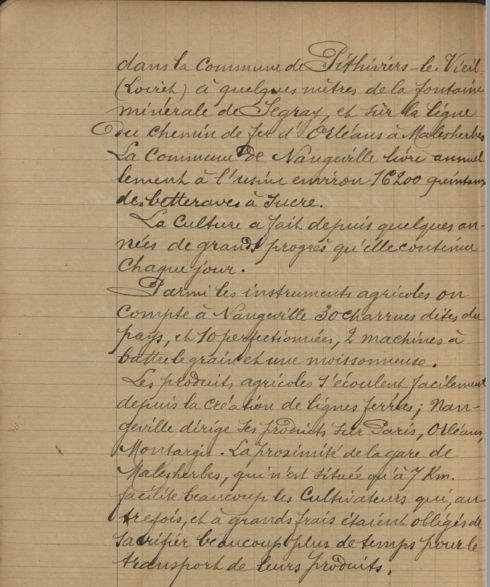 dans la Commune de Pithiviers-le-Vieil
(Loiret) à quelques mètres de la fontaine
minérale de Segray, et sur la ligne
du chemin de fer d'Orléans à Malesherbes
La Commune de Nangeville livre annuel
lement à l'usine environ 16200 quintaux
de betteraves à sucre.
La Culture a fait depuis quelques an-
nées de grands progrès qu'elle continue
chaque jour.
Parmi les instruments agricoles on
compte à Nangeville 30 charrues dites du
pays, et 10 perfectionnées, 2 machines à
battre le grain et une moissonneuse.
Les produits agricoles s'écoulent facilement
depuis la création de lignes ferrées; Nan-
geville dirige ses produits sur Paris, Orléans,
Montargis. La proximité de la gare de
Malesherbes, qui n'est située qu'à 7 Km.
facilite beaucoup les Cultivateurs qui, au
trefois, et à grands frais étaient obligés de
sacrifier beaucoup plus de temps pour le
transport de leurs produits.